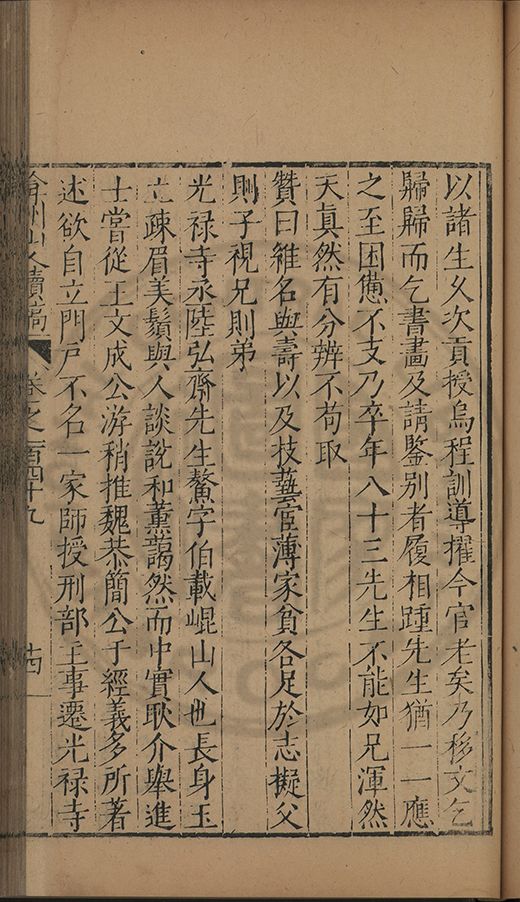 以諸生久次貢授烏程訓導擢今官老矣乃移文乞
歸歸而乞書畫及請鑒別者履相踵先生猶一一應
之至困憊不支乃卒年八十三先生不能如兄渾然
天真然有分辨不苟取
贊曰雖名與壽以及技藝宦薄家貧各足於志擬父
則子視兄則弟
光禄寺丞陸弘齋先生鰲字伯載崐山人也長身玉
立疎眉美鬚與人談說和薰藹然而中實耿介舉進
士嘗從王文成公游稍推魏恭簡公于經義多所著
述欲自立門戶不名一家師授刑部主事遷光禄寺
弇州山人續稿 卷之一百四十九 十四